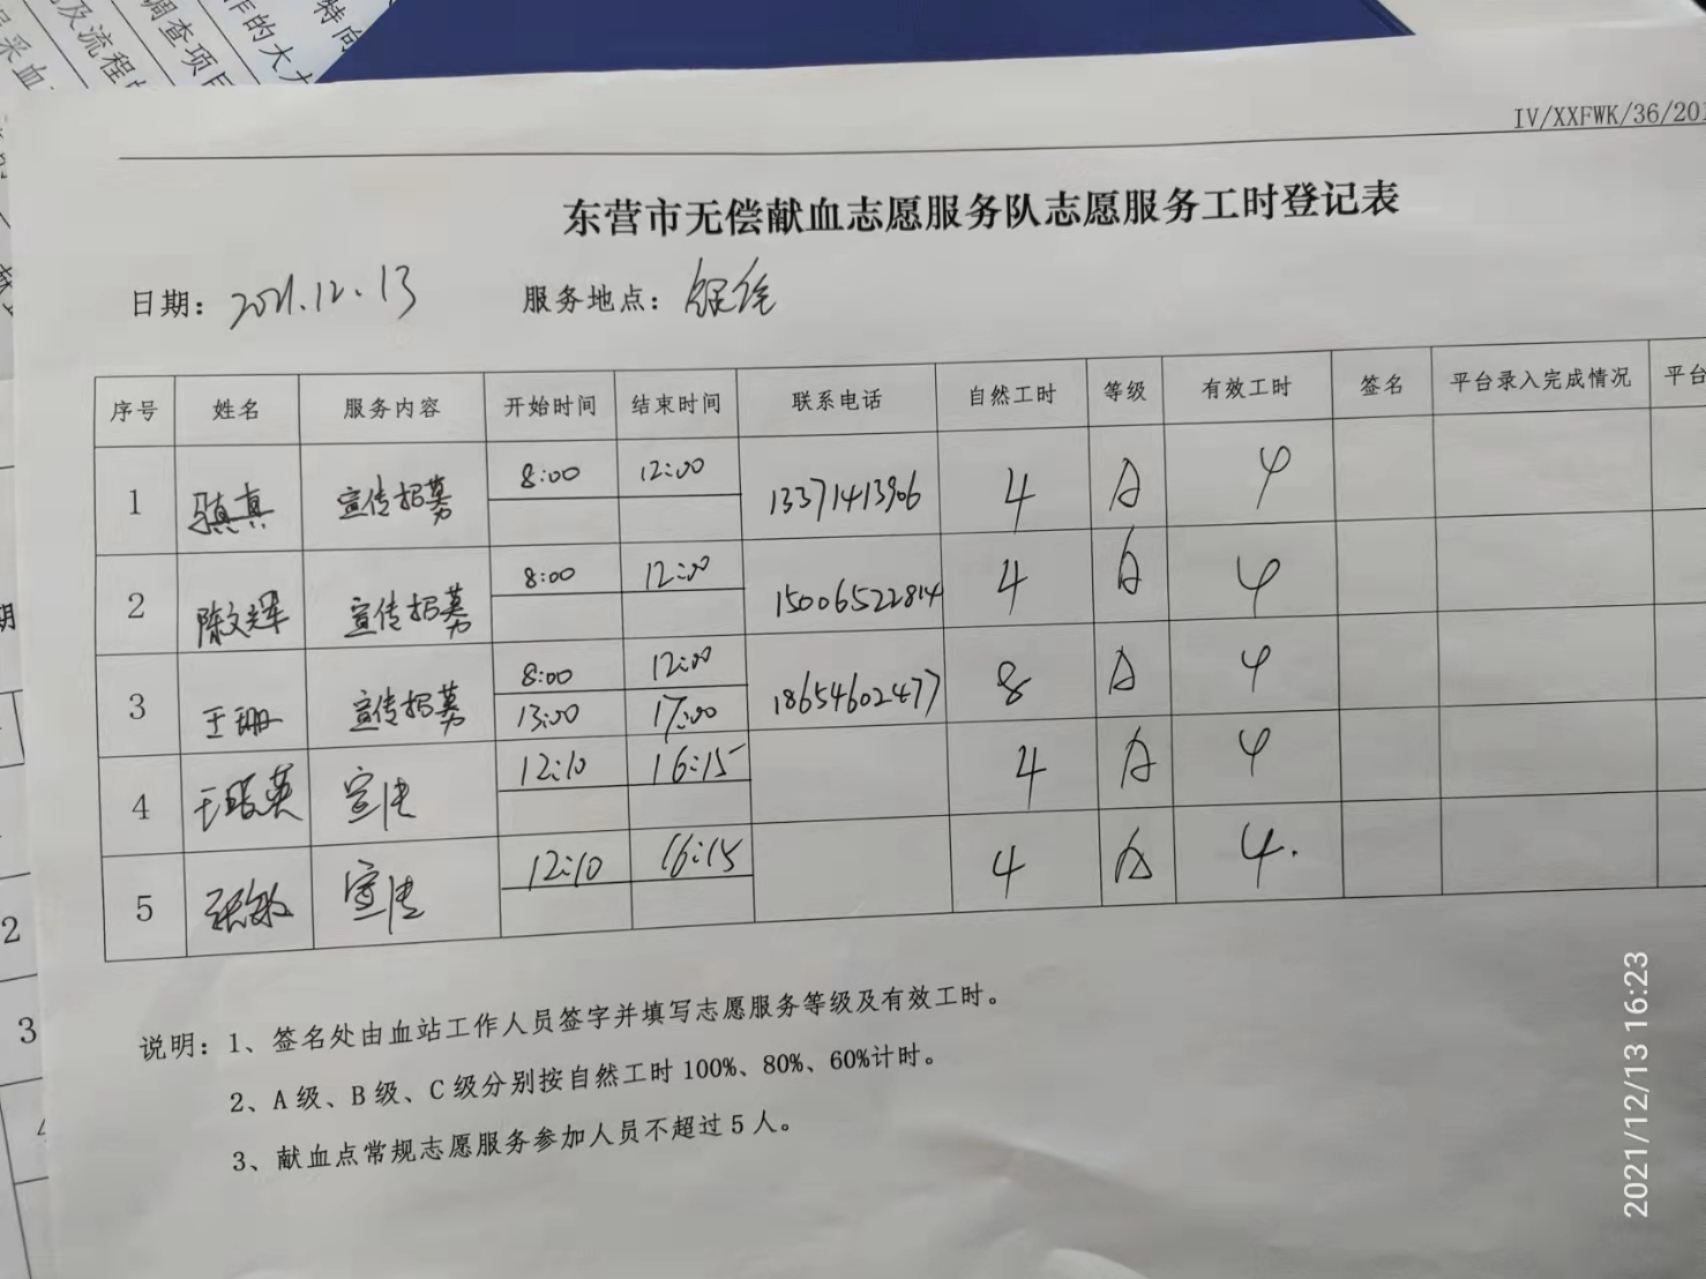 特向
作的大力
调查项目
及流程
采血
IV/XXFWK/36/201
东营市无偿献血志愿服务队志愿服务工时登记表
日期: 2021.12.13 服务地点: 银座
序号 姓名 服务内容 开始时间 结束时间 联系电话 自然工时 等级 有效工时 签名 平台录入完成情况 平台
1 骐真 宣传招募 8:00 12:00 13371413906 4 A 4
2 陈文辉 宣传招募 8:00 12:00 15006522814 4 A 4
3 王珊 宣传招募 8:00 12:00 18654602477 8 A 4
13:00 17:00
4 英 宣传 12:10 16:15 4 A 4
5 张敏 宣传 12:10 16:15 4 A 4.
说明: 1、签名处由血站工作人员签字并填写志愿服务等级及有效工时。
2、A 级、B 级、C 级分别按自然工时 100%、80%、60%计时。
3、献血点常规志愿服务参加人员不超过 5 人。
期
2
3
4
2021/12/13 16:23